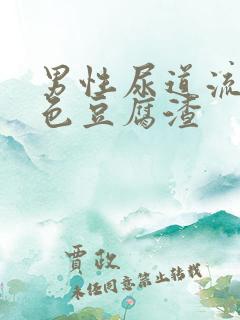 男性尿道流
色豆腐渣
贾政
未经同意禁止转载